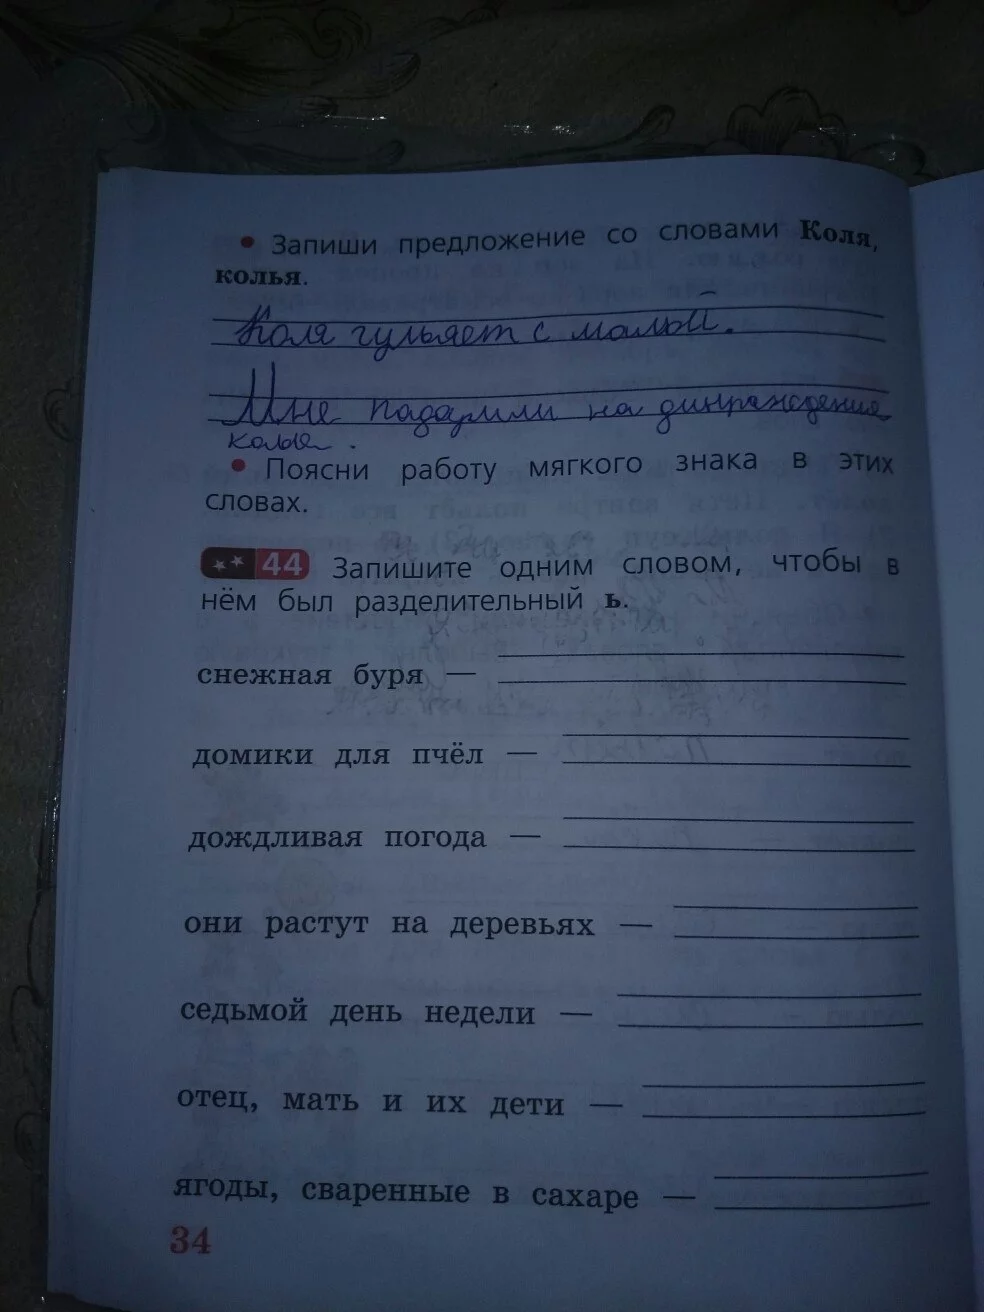 • Запиши предложение со словами Коля,
колья.
Коля гульяет с малой.
Мне падарили на динраждения
колья.
• Поясни работу мягкого знака в этих
словах.
44 Запишите одним словом, чтобы в
нём был разделительный ь.
снежная буря —
домики для пчёл —
дождливая погода —
они растут на деревьях —
седьмой день недели —
отец, мать и их дети —
ягоды, сваренные в сахаре —
34